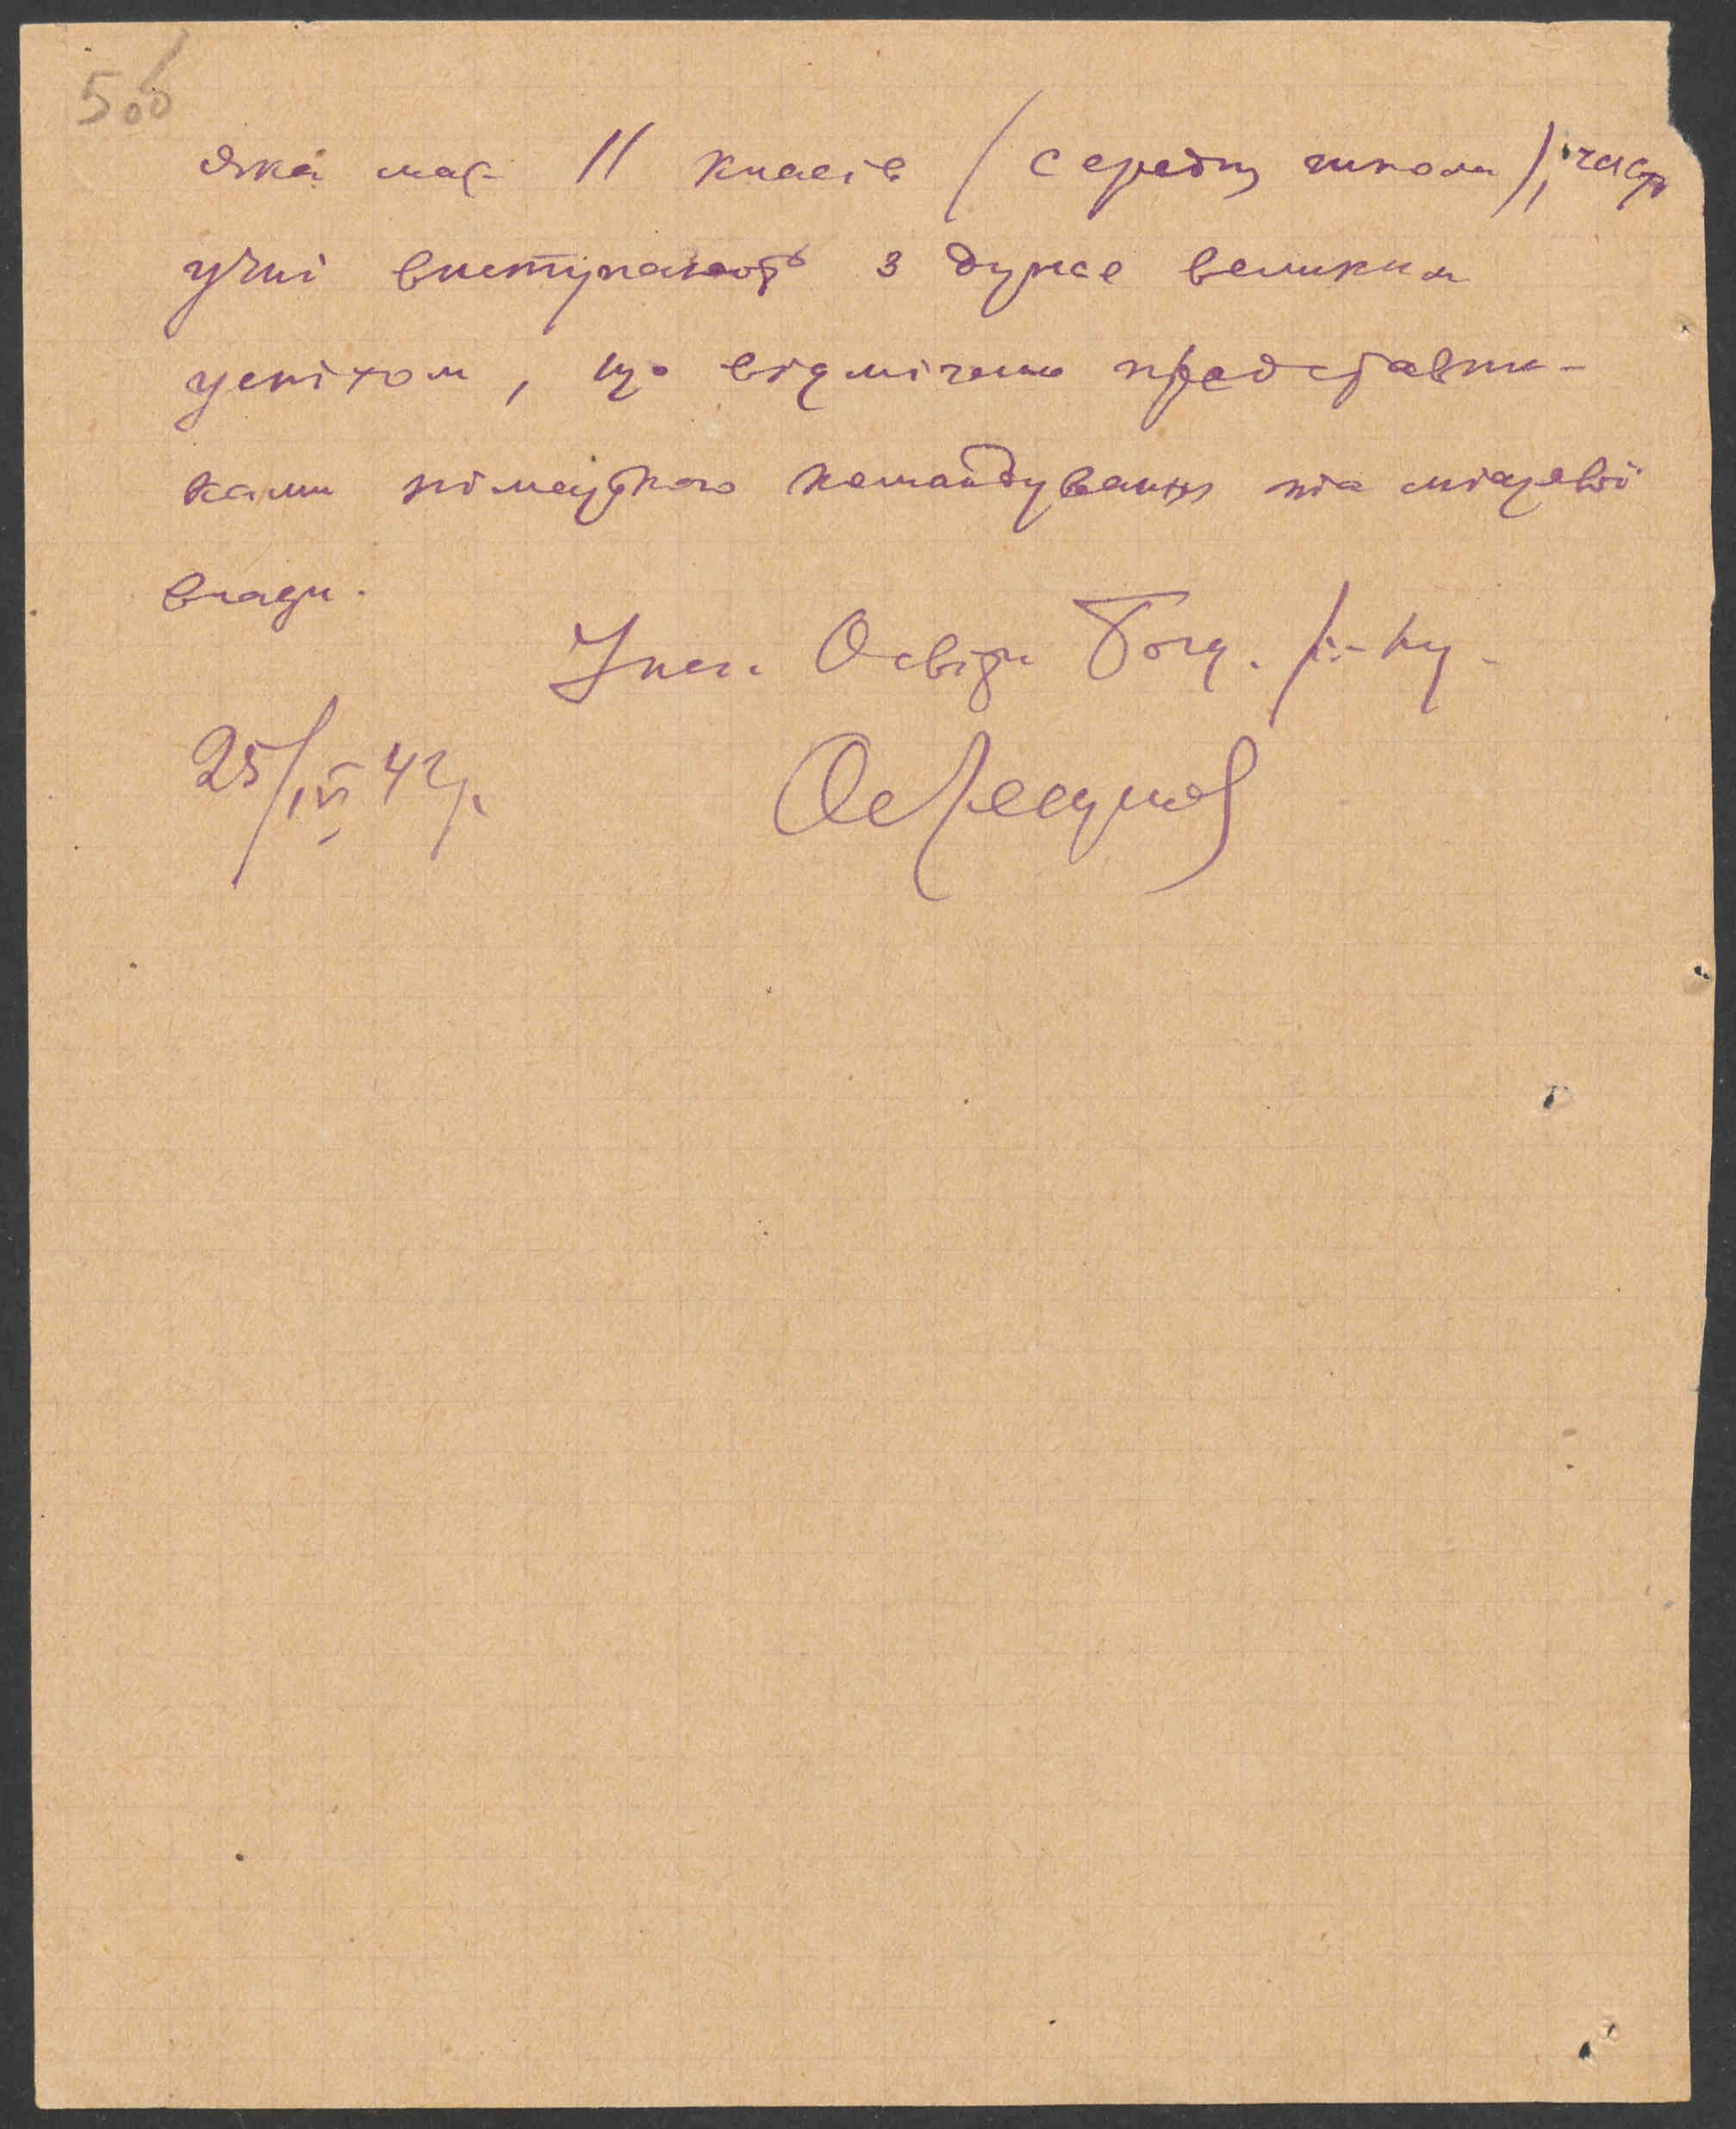 50б
яка має 11 класів (середня школа), часто
учні виступають з дуже великим
успіхом, що відмічено представни-
ками німецького командування та місцевої
влади.
Інсп. Освіти Богд. р-ну.
25/IV 42 р.